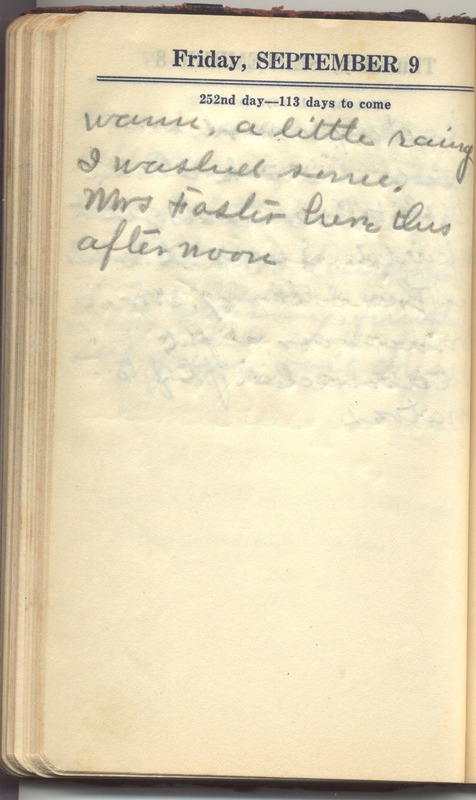 Friday, SEPTEMBER 9
252nd day—113 days to come
warm, a little rainy
I washed some.
Mrs Foster here this
afternoon